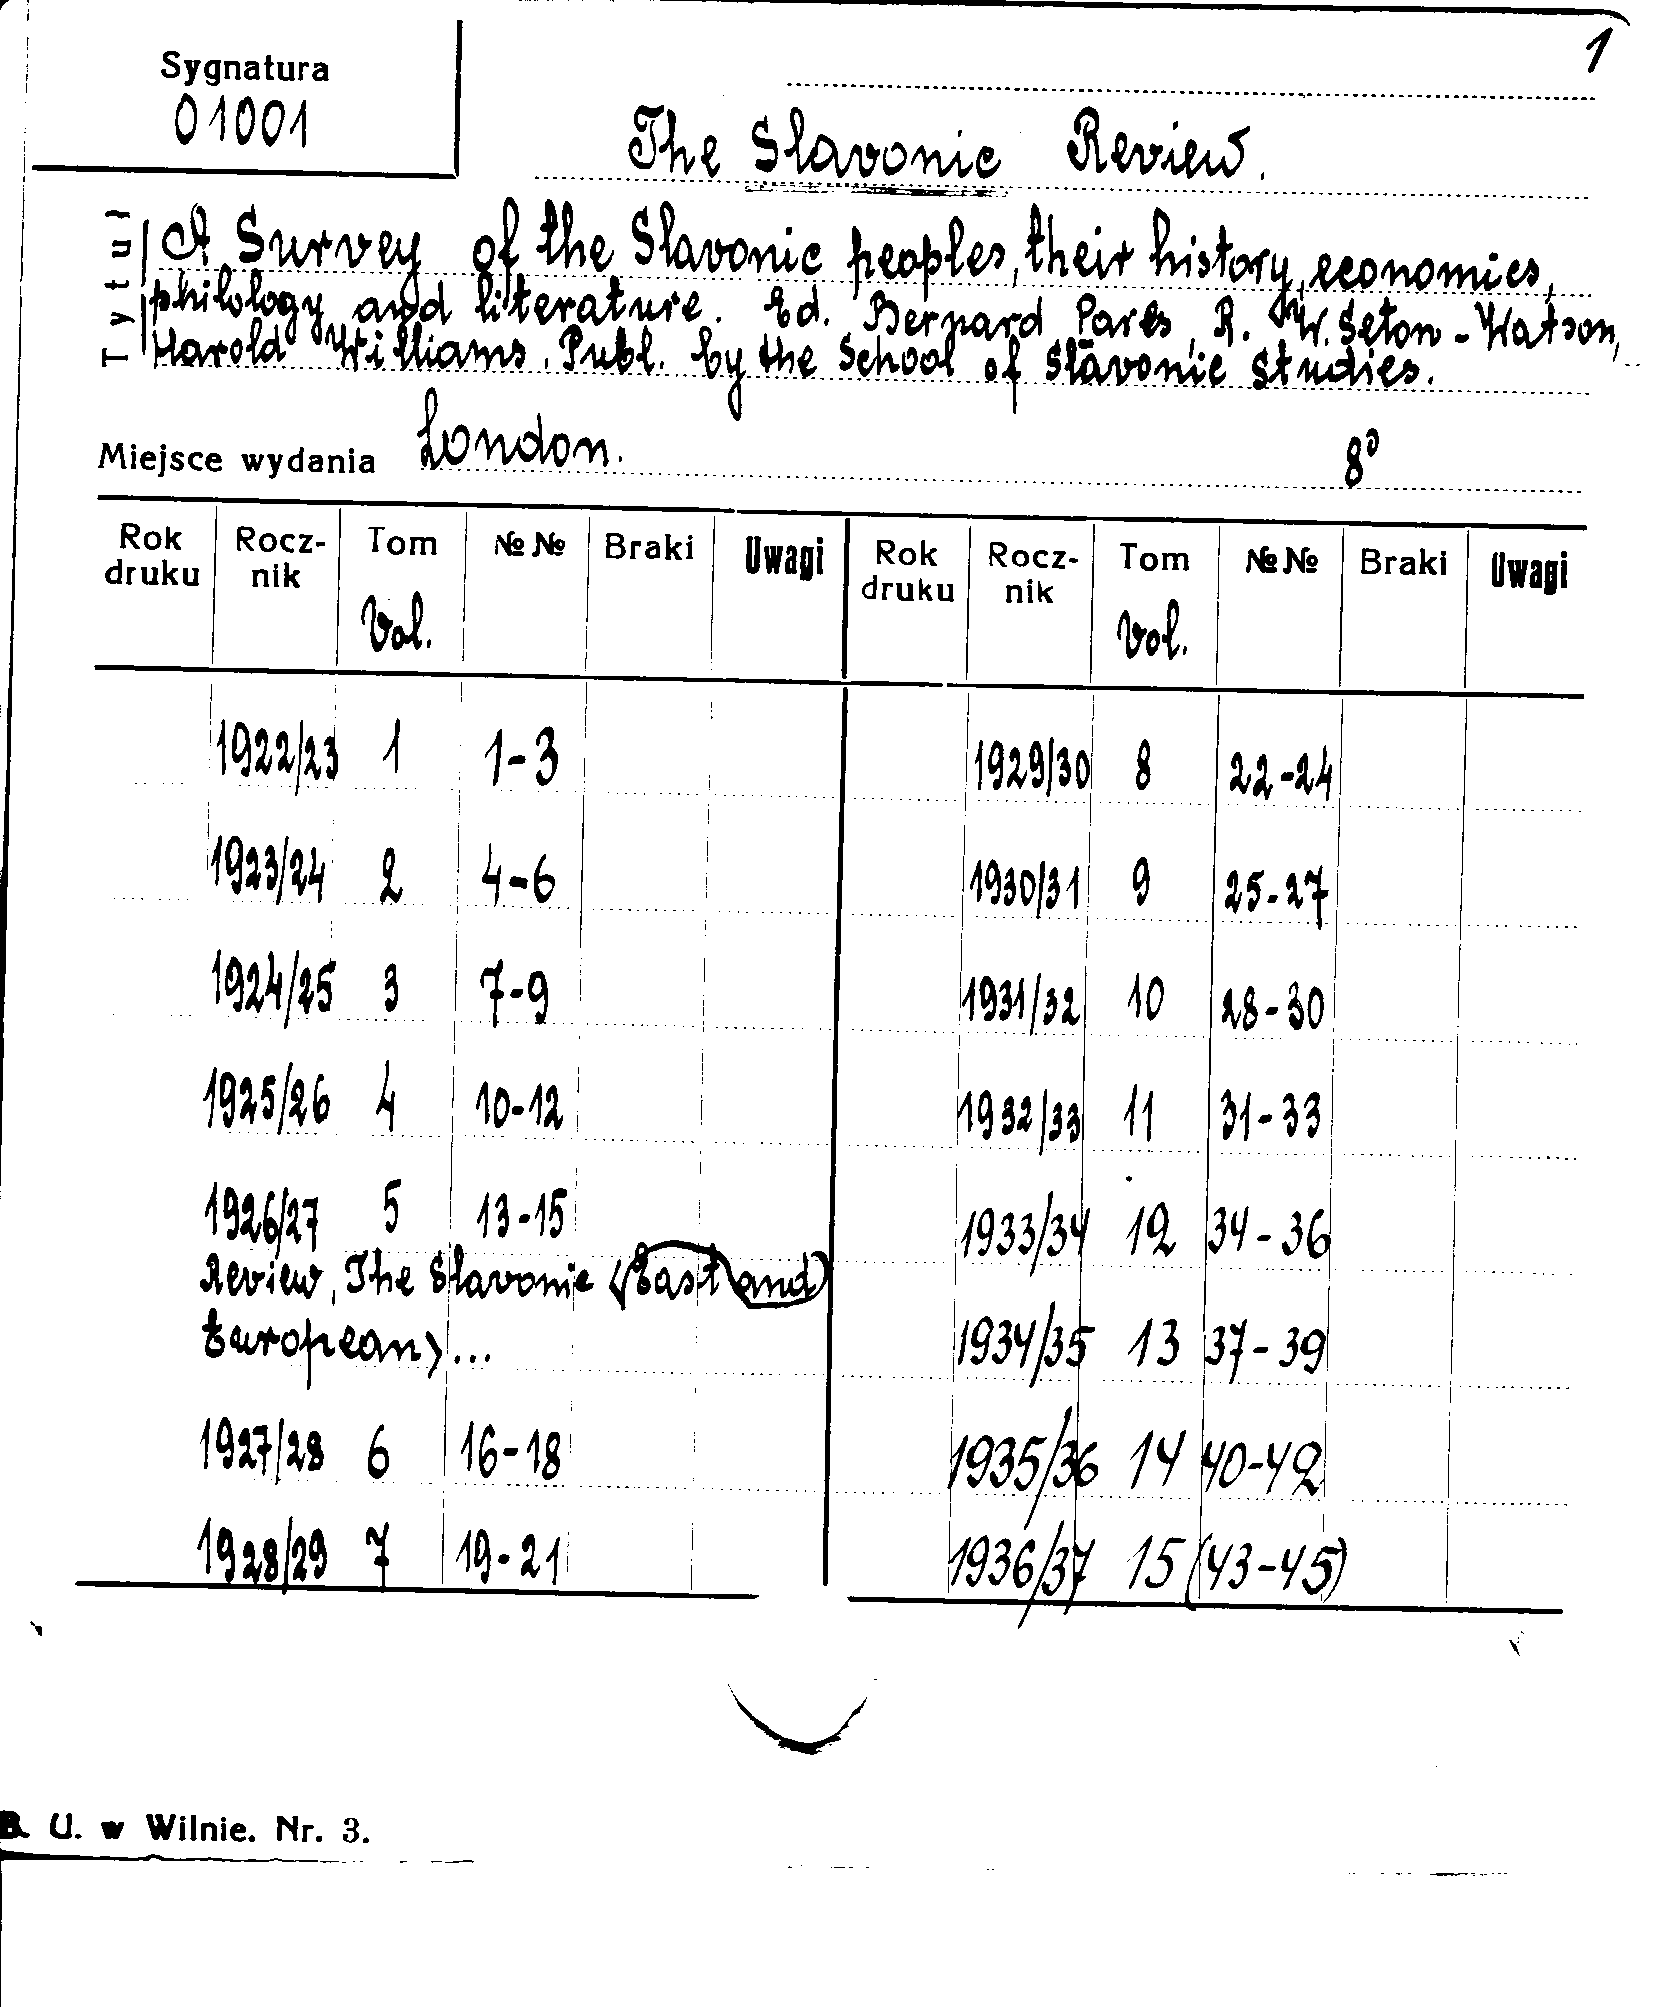 1
Sygnatura
01001
The Slavonic Review.
Tytuł
A Survey of the Slavonic peoples, their history, economics,
philology and literature. Ed. Bernard Pares, R. W. Seton-Watson,
Harold Williams. Publ. by the School of Slavonic Studies.
Miejsce wydania London. 8°
Rok druku Rocz-nik Tom №№ Braki Uwagi Rok druku Rocz-nik Tom №№ Braki Uwagi
Vol. Vol.
1922/23 1 1-3 1929/30 8 22-24
1923/24 2 4-6 1930/31 9 25-27
1924/25 3 7-9 1931/32 10 28-30
1925/26 4 10-12 1932/33 11 31-33
1926/27 5 13-15 1933/34 12 34-36
Review, The Slavonic (East and)
European> ... 1934/35 13 37-39
1927/28 6 16-18 1935/36 14 40-42
1928/29 7 19-21 1936/37 15 (43-45)
B. U. w Wilnie. Nr. 3.